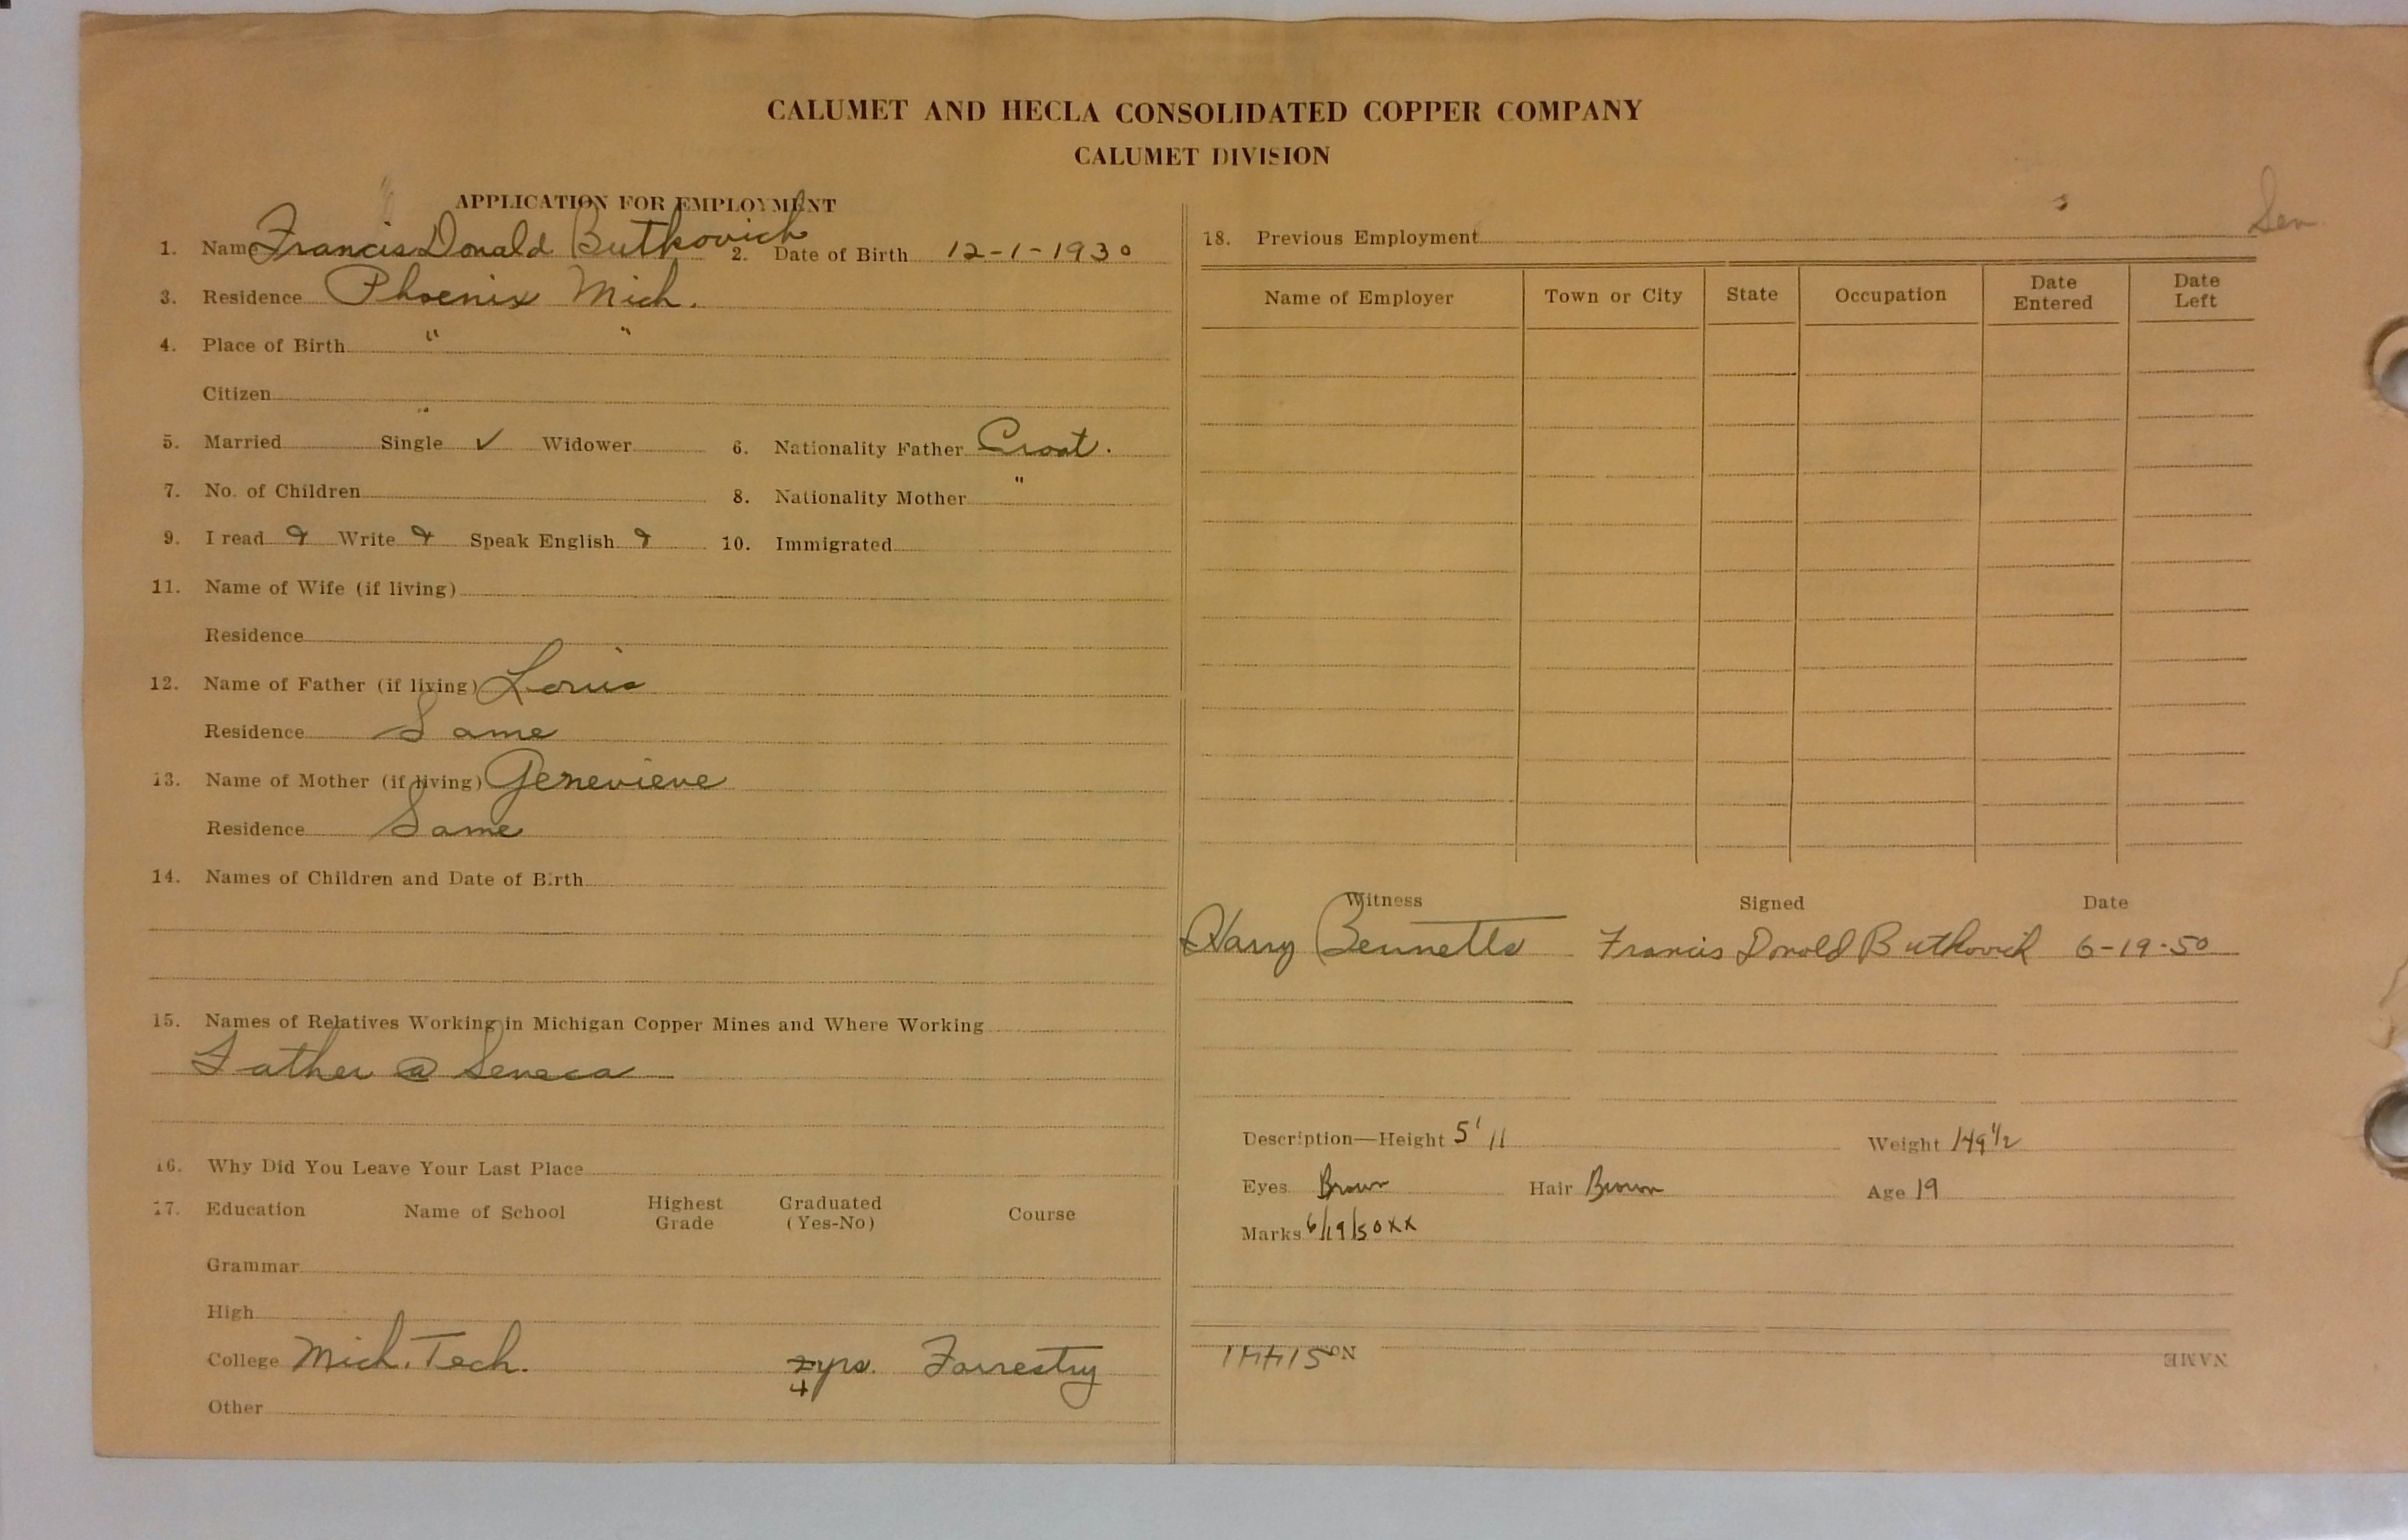 CALUMET AND HECLA CONSOLIDATED COPPER COMPANY
CALUMET DIVISION
APPLICATION FOR EMPLOYMENT
1. Name Francis Donald Butkovich 2. Date of Birth 12-1-1930
3. Residence Phoenix Mich.
4. Place of Birth " "
Citizen
5. Married Single ✓ Widower 6. Nationality Father Croat.
7. No. of Children 8. Nationality Mother "
9. I read Write Speak English 10. Immigrated
11. Name of Wife (if living)
Residence
12. Name of Father (if living) Louis
Residence Same
13. Name of Mother (if living) Genevieve
Residence Same
14. Names of Children and Date of Birth
15. Names of Relatives Working in Michigan Copper Mines and Where Working
Father @ Seneca
16. Why Did You Leave Your Last Place
17. Education Name of School Highest Grade Graduated (Yes-No) Course
Grammar
High
College Mich. Tech. 4 yrs. Forrestry
Other
Sen
18. Previous Employment
Name of Employer Town or City State Occupation Date Entered Date Left
Witness Signed Date
Harry Bennetts Francis Donald Butkovich 6-19-50
Description—Height 5' 11 Weight 149 1/2
Eyes Brown Hair Brown Age 19
Marks 6/19/50 XX
NAME No.